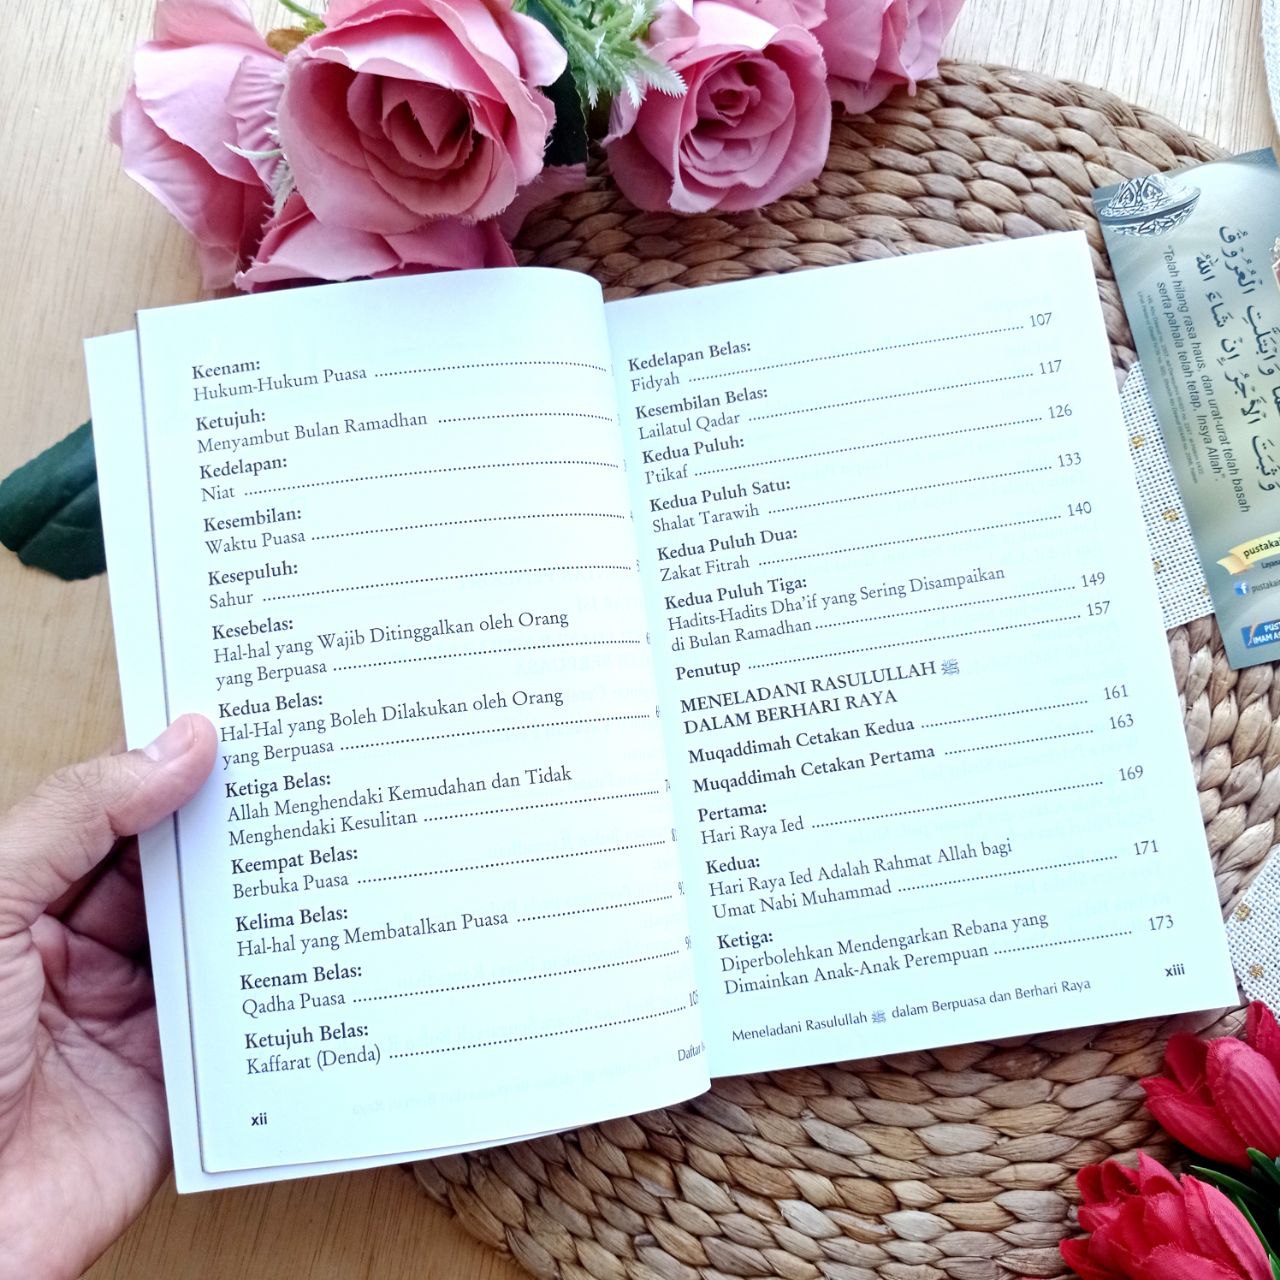 Keenam:
Hukum-Hukum Puasa
Ketujuh:
Menyambut Bulan Ramadhan
Kedelapan:
Niat
Kesembilan:
Waktu Puasa
Kesepuluh:
Sahur
Kesebelas:
Hal-hal yang Wajib Ditinggalkan oleh Orang
yang Berpuasa
Kedua Belas:
Hal-Hal yang Boleh Dilakukan oleh Orang
yang Berpuasa
Ketiga Belas:
Allah Menghendaki Kemudahan dan Tidak
Menghendaki Kesulitan
Keempat Belas:
Berbuka Puasa
Kelima Belas:
Hal-hal yang Membatalkan Puasa
Keenam Belas:
Qadha Puasa
Ketujuh Belas:
Kaffarat (Denda)
xii
Daftar
Kedelapan Belas:
Fidyah 107
Kesembilan Belas:
Lailatul Qadar 117
Kedua Puluh:
I'tikaf 126
Kedua Puluh Satu:
Shalat Tarawih 133
Kedua Puluh Dua:
Zakat Fitrah 140
Kedua Puluh Tiga:
Hadits-Hadits Dha'if yang Sering Disampaikan
di Bulan Ramadhan 149
Penutup 157
MENELADANI RASULULLAH ﷺ
DALAM BERHARI RAYA
Muqaddimah Cetakan Kedua 161
Muqaddimah Cetakan Pertama 163
Pertama:
Hari Raya Ied 169
Kedua:
Hari Raya Ied Adalah Rahmat Allah bagi
Umat Nabi Muhammad 171
Ketiga:
Diperbolehkan Mendengarkan Rebana yang
Dimainkan Anak-Anak Perempuan 173
Meneladani Rasulullah ﷺ dalam Berpuasa dan Berhari Raya
xiii
وَابْتَلَّتِ الْعُرُوْقُ
وَثَبَتَ الْأَجْرُ إِنْ شَاءَ اللهُ
"Telah hilang rasa haus, dan urat-urat telah basah
serta pahala telah tetap, Insya Allah".